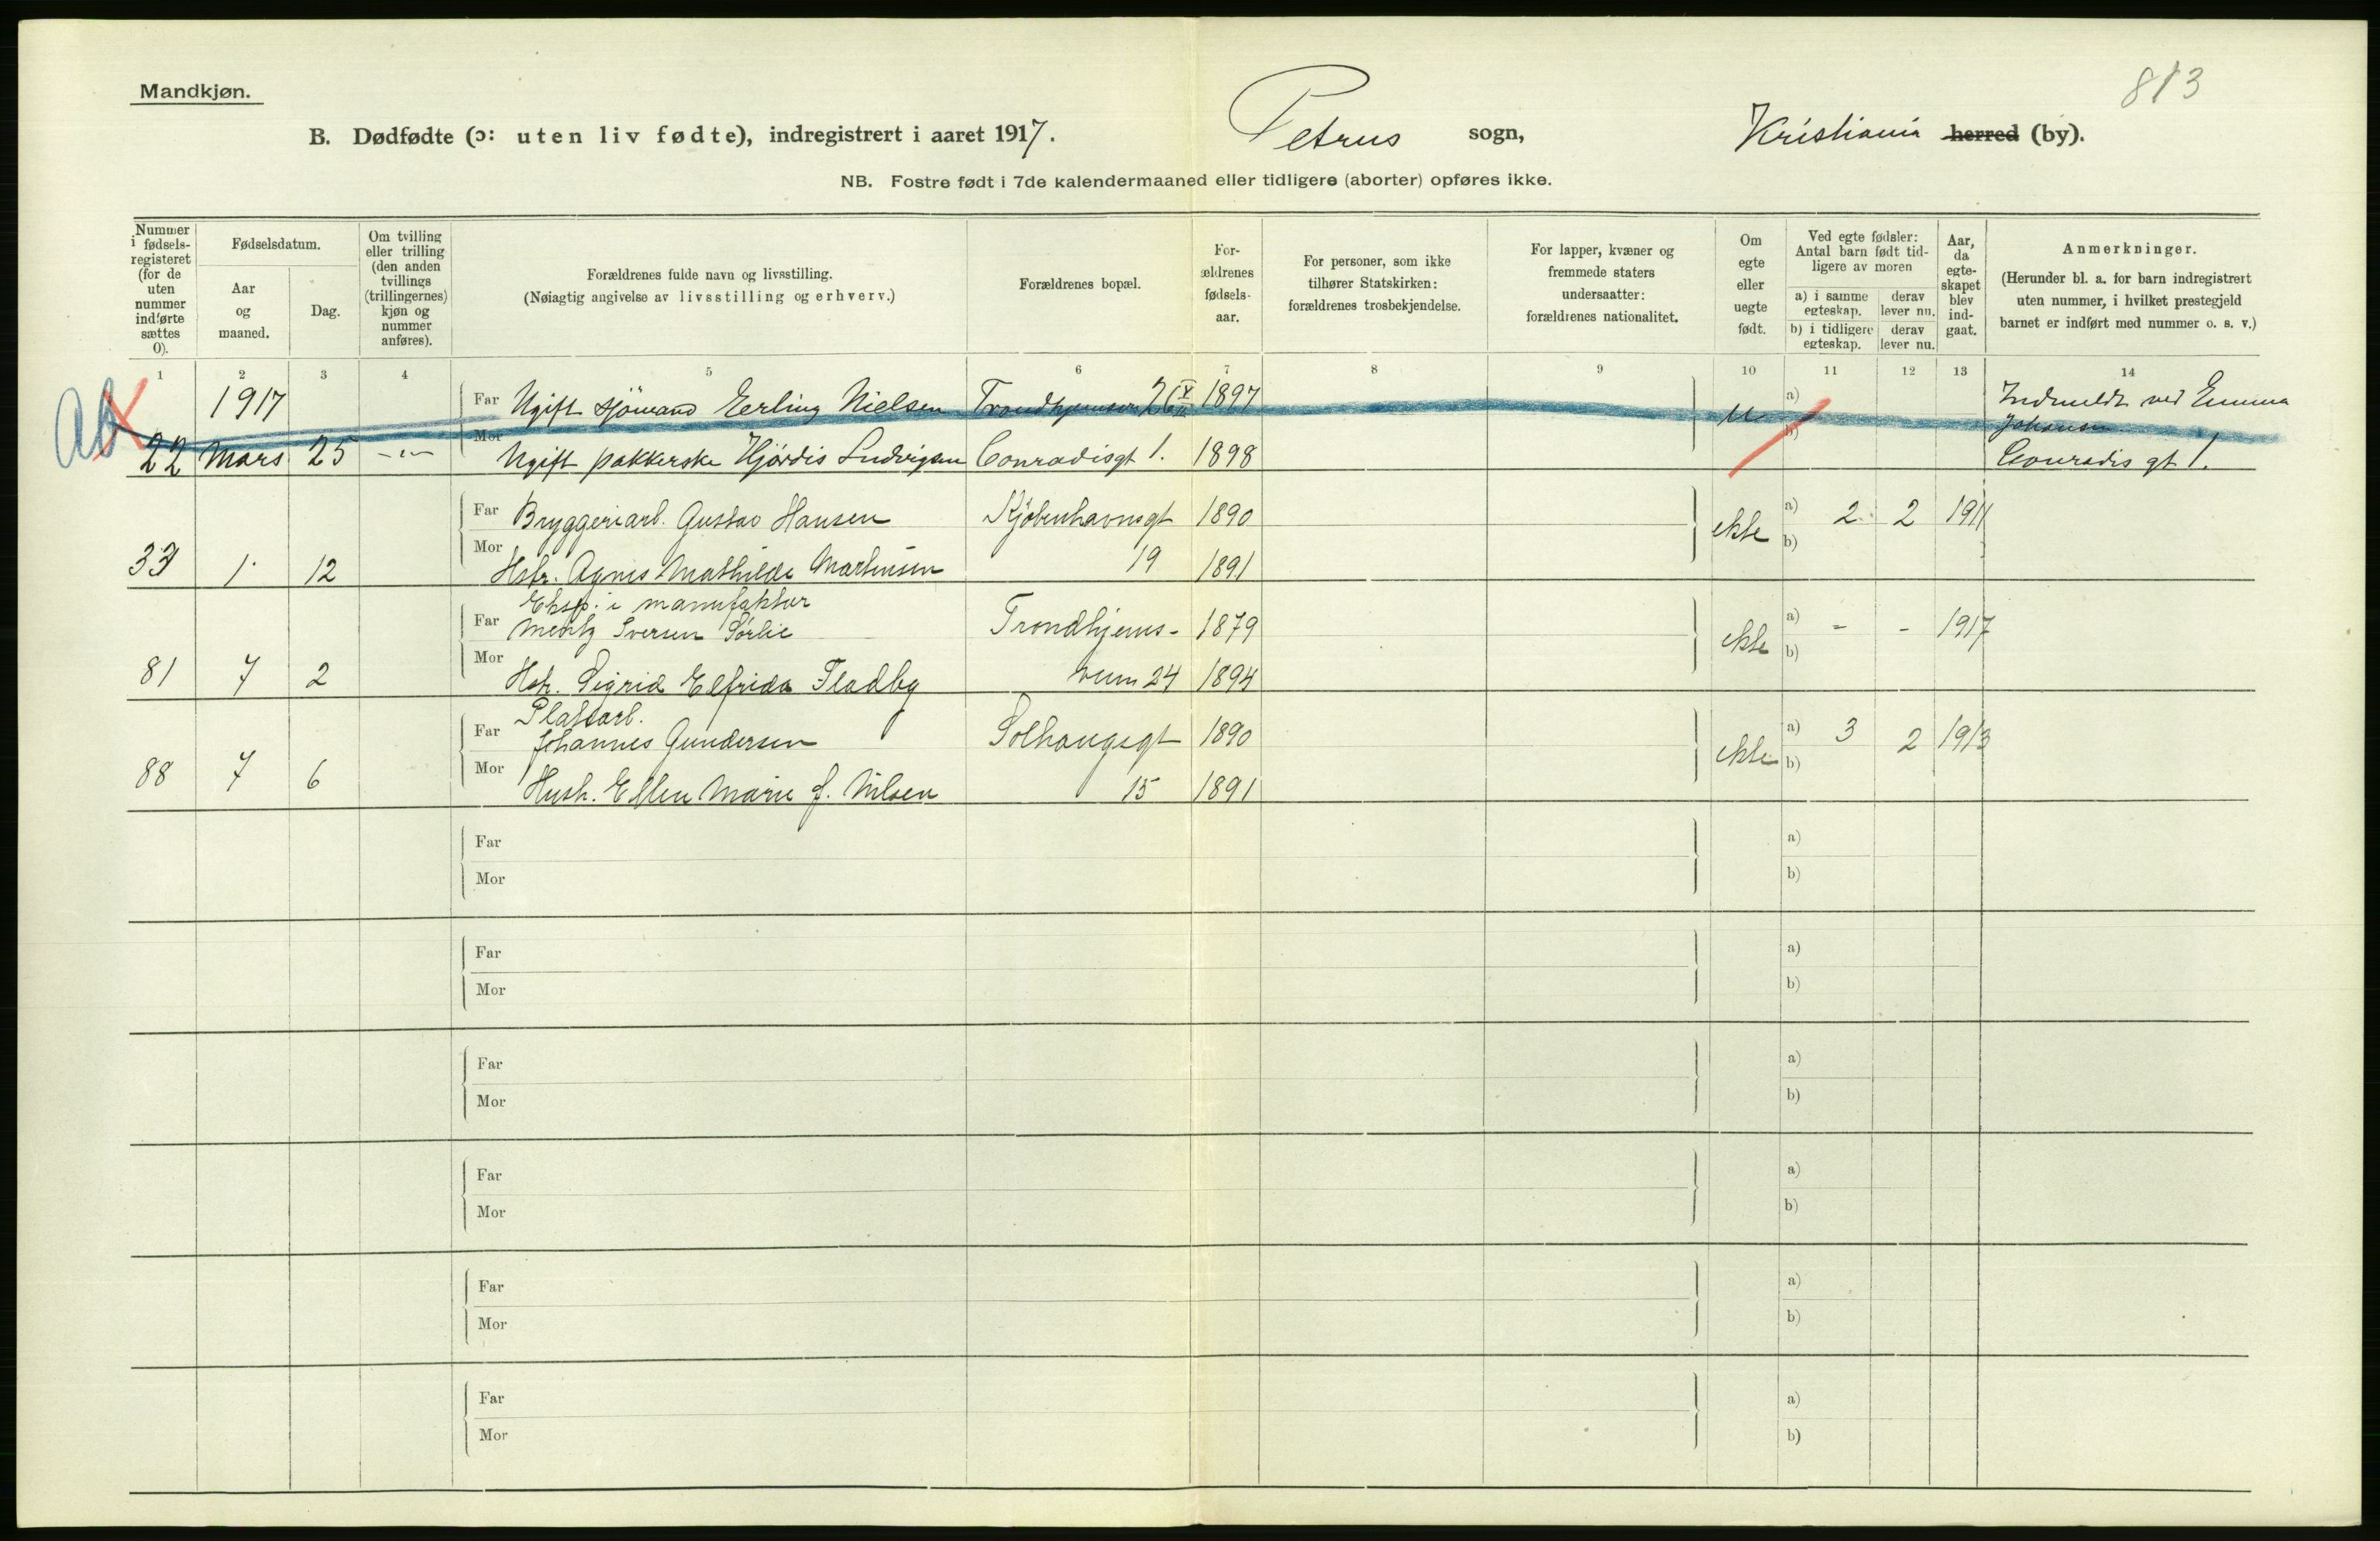 813
Mandkjøn.
B. Dødfødte (ɔ: uten liv fødte), indregistrert i aaret 1917. Petrus sogn, Kristiania herred (by).
NB. Fostre født i 7de kalendermaaned eller tidligere (aborter) opføres ikke.
Nummer i fødsels-registeret (for de uten nummer indførte sættes 0).
Fødselsdatum.
Aar og maaned.
Dag.
Om tvilling eller trilling (den anden tvillings (trillingernes) kjøn og nummer anføres).
Forældrenes fulde navn og livsstilling.
(Nøiagtig angivelse av livsstilling og erhverv.)
Forældrenes bopæl.
For-ældrenes fødsels-aar.
For personer, som ikke tilhører Statskirken: forældrenes trosbekjendelse.
For lapper, kvæner og fremmede staters undersaatter: forældrenes nationalitet.
Om egte eller uegte født.
Ved egte fødsler: Antal barn født tid-ligere av moren
a) i samme egteskap.
derav lever nu.
b) i tidligere egteskap.
derav lever nu.
Aar, da egte-skapet blev ind-gaat.
Anmerkninger.
(Herunder bl. a. for barn indregistrert uten nummer, i hvilket prestegjeld barnet er indført med nummer o. s. v.)
1 2 3 4 5 6 7 8 9 10 11 12 13 14
Ab
1917 Far Ugift sjömand Eerling Nielsen 1897 u a) Indmeldt ved Emma
Johansen
22 Mars 25 -"- Mor Ugift pakkerske Hjørdis Ludvigsen Conradisgt 1. 1898 b) Conradis gt 1.
Far Bryggeriarb. Gustav Hansen Kjøbenhavnsgt 1890 ekte a) 2 2 1911
33 1 12 Mor Hstr. Agnes Mathilde Martinsen 19 1891 b)
Eksp. i manufaktur
Far Mentz Iversen Sørlie Trondhjems- 1879 ekte a) - - 1917
81 7 2 Mor Hstr. Sigrid Elfrida Fladby veien 24 1894 b)
Platsarb.
Far Johannes Gundersen Solhaugsgt 1890 ekte a) 3 2 1913
88 7 6 Mor Hustr. Ellen Marie f. Nilsen 15 1891 b)
Far a)
Mor b)
Far a)
Mor b)
Far a)
Mor b)
Far a)
Mor b)
Far a)
Mor b)
Far a)
Mor b)